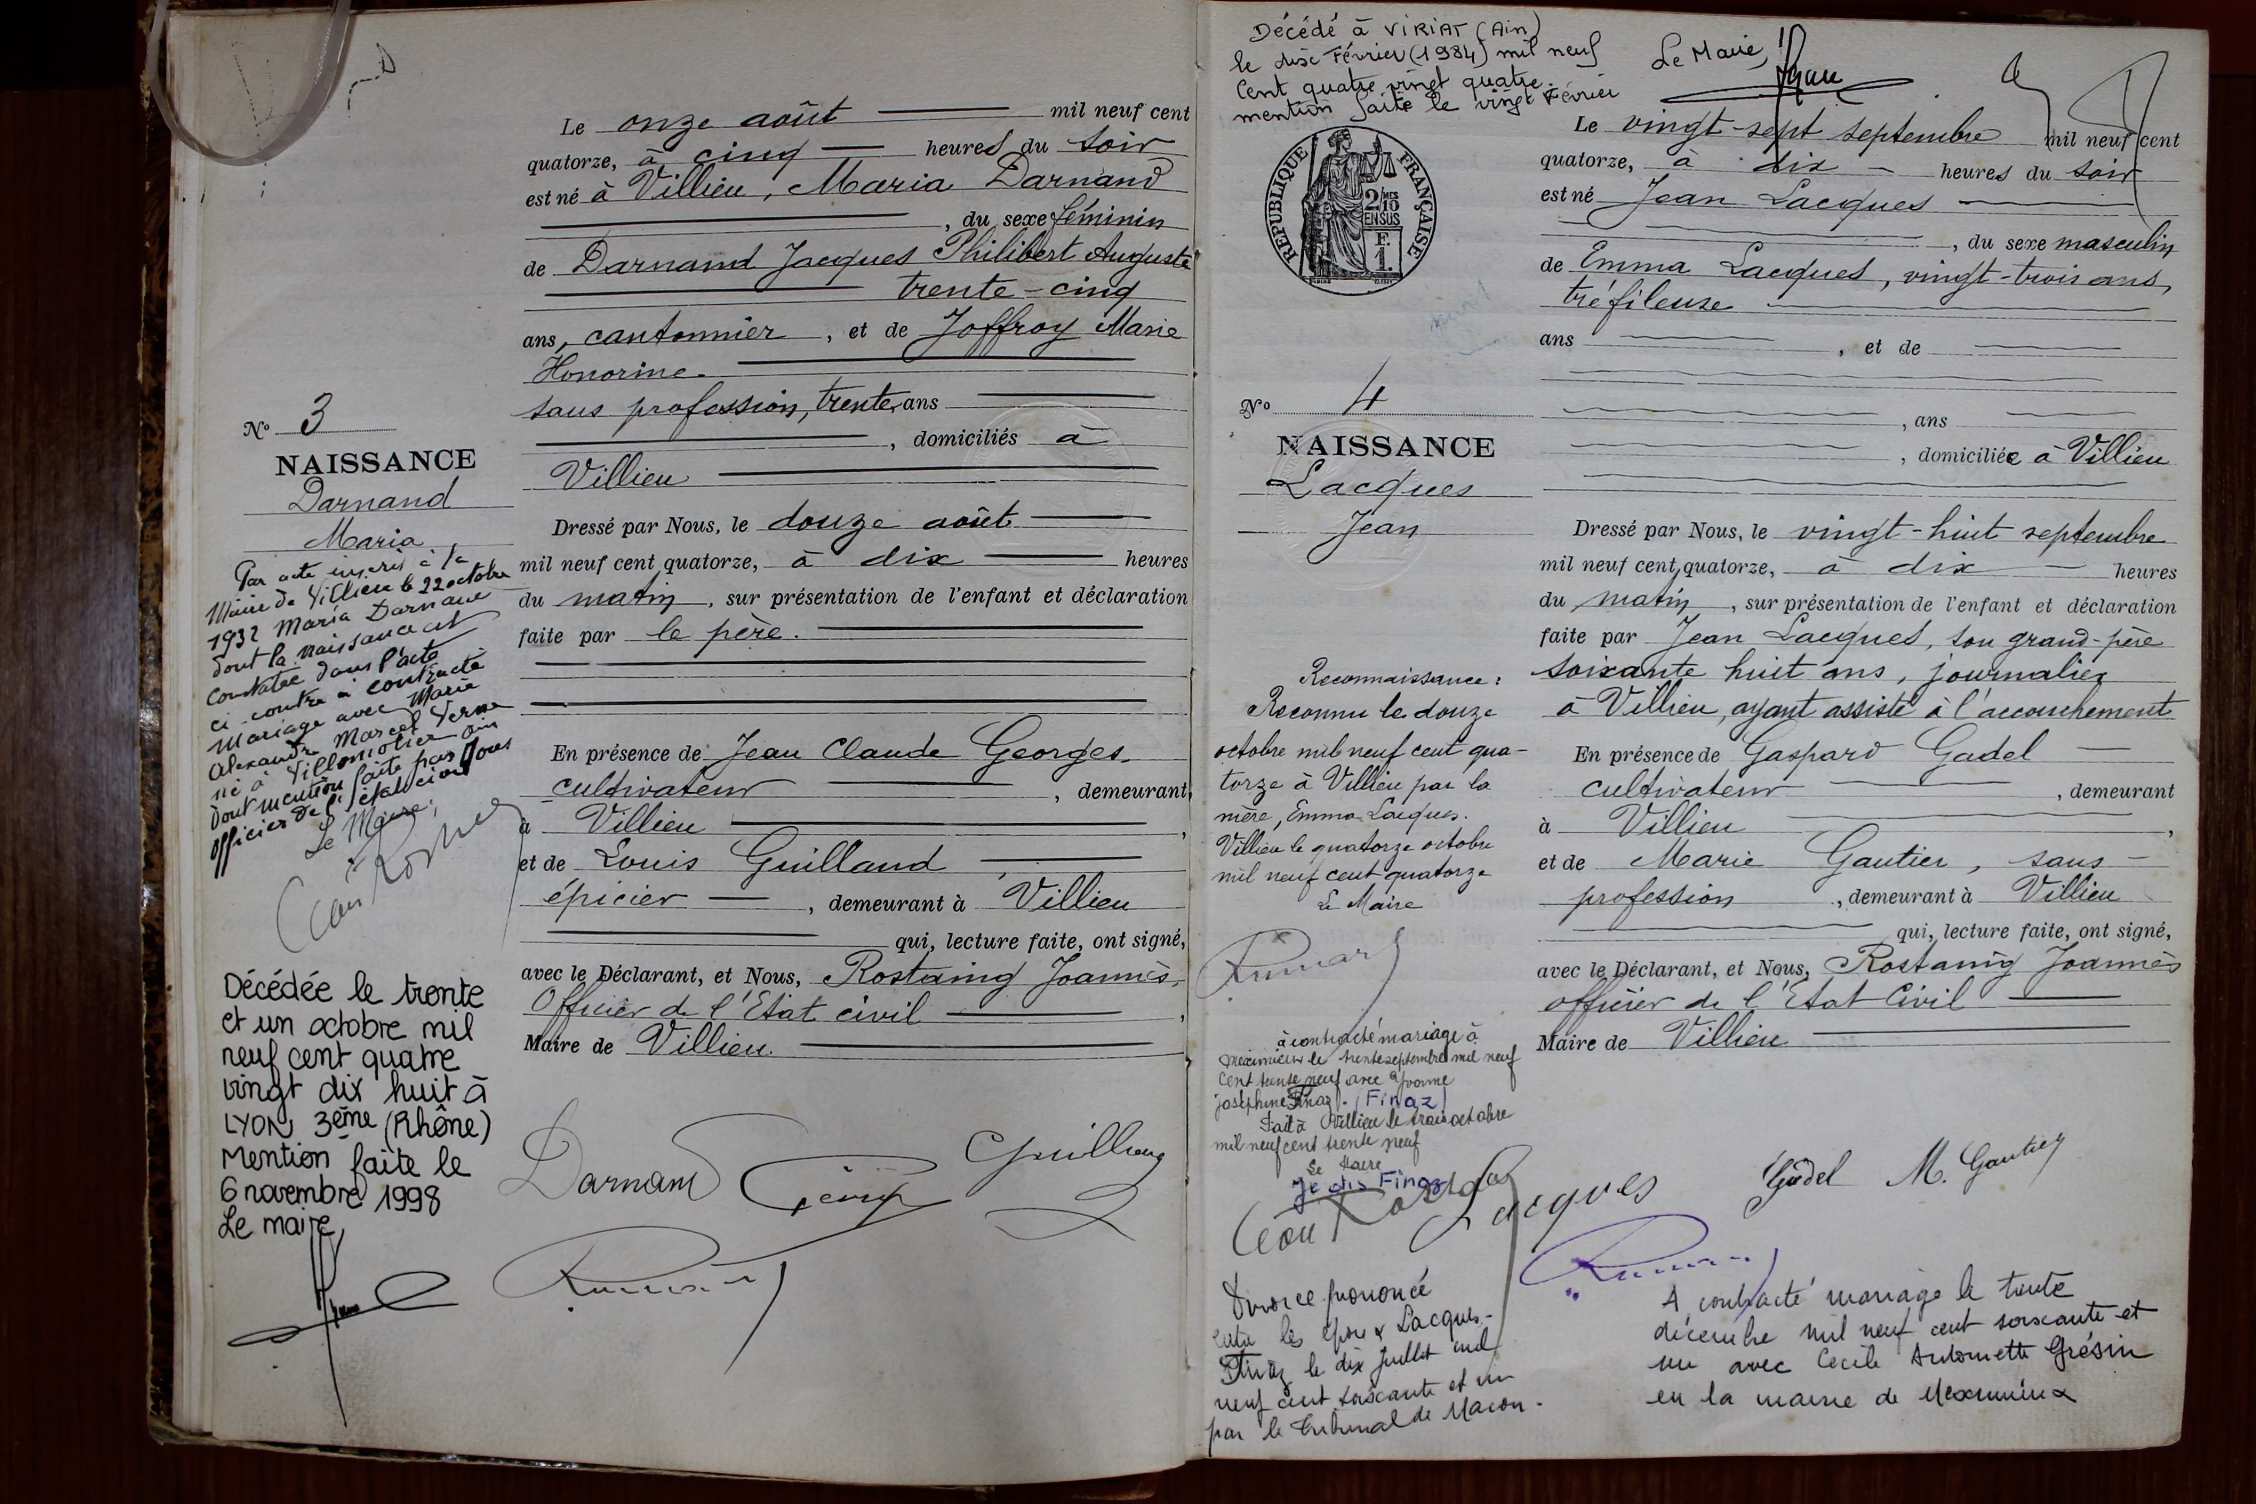 Le onze août mil neuf cent
quatorze, à cinq heures du soir
est né à Villieu, Maria Darnand
, du sexe féminin
de Darnand Jacques Philibert Auguste
trente-cinq
ans, cantonnier, et de Joffroy Marie
Honorine.
sans profession, trente ans
, domiciliés à
Villieu
Dressé par Nous, le douze août
mil neuf cent quatorze, à dix heures
du matin, sur présentation de l'enfant et déclaration
faite par le père.
En présence de Jean Claude Georges,
cultivateur, demeurant
à Villieu,
et de Louis Guilland,
épicier, demeurant à Villieu
qui, lecture faite, ont signé,
avec le Déclarant, et Nous, Rostaing Joannès,
Officier de l'Etat civil,
Maire de Villieu.
Darnand
Nº 3
NAISSANCE
Darnand
Maria
Par acte inscrit à la
Mairie de Villieu le 22 octobre
1932 Maria Darnand
dont la naissance est
constatée dans l'acte
ci-contre a contracté
mariage avec Marie
Alexandre Marcel Verne
né à Villemotier ain
Dont mention faite par Nous
officier de l'état civil
Le Maire,
Décédée le trente
et un octobre mil
neuf cent quatre
vingt dix huit à
LYON 3ème (Rhône)
Mention faite le
6 novembre 1998
Le maire,
Décédé à VIRIAT (Ain)
le dix Février (1984) mil neuf
cent quatre vingt quatre.
mention faite le vingt Février
Le Maire,
REPUBLIQUE FRANÇAISE
2/10 MES
EN SUS
F.
1.
Le vingt-sept septembre mil neuf cent
quatorze, à dix heures du soir
est né Jean Lacques
, du sexe masculin
de Emma Lacques, vingt-trois ans,
tréfileuse
ans, et de
, ans
, domiciliée à Villieu
Dressé par Nous, le vingt-huit septembre
mil neuf cent quatorze, à dix heures
du matin, sur présentation de l'enfant et déclaration
faite par Jean Lacques, son grand-père
soixante huit ans, journalier
à Villieu, ayant assisté à l'accouchement
En présence de Gaspard Gadel
cultivateur, demeurant
à Villieu,
et de Marie Gautier, sans
profession, demeurant à Villieu
qui, lecture faite, ont signé,
avec le Déclarant, et Nous, Rostaing Joannès
officier de l'Etat Civil
Maire de Villieu
Lacques
Gadel
M. Gautier
Nº 4
NAISSANCE
Lacques
Jean
Reconnaissance :
Reconnu le douze
octobre mil neuf cent qua-
torze à Villieu par la
mère, Emma Lacques.
Villieu le quatorze octobre
mil neuf cent quatorze
Le Maire
à contracté mariage à
Meximieux le trente septembre mil neuf
cent trente neuf avec Yvonne
Joséphine Finaz. (Finaz)
Fait à Villieu le trois octobre
mil neuf cent trente neuf
Le Maire
Je dis Finaz
Divorce prononcé
entre les époux Lacques-
Finaz le dix Juillet mil
neuf cent soixante et un
par le tribunal de Macon.
A contracté mariage le trente
décembre mil neuf cent soixante et
un avec Cécile Antoinette Grésin
en la mairie de Meximieux